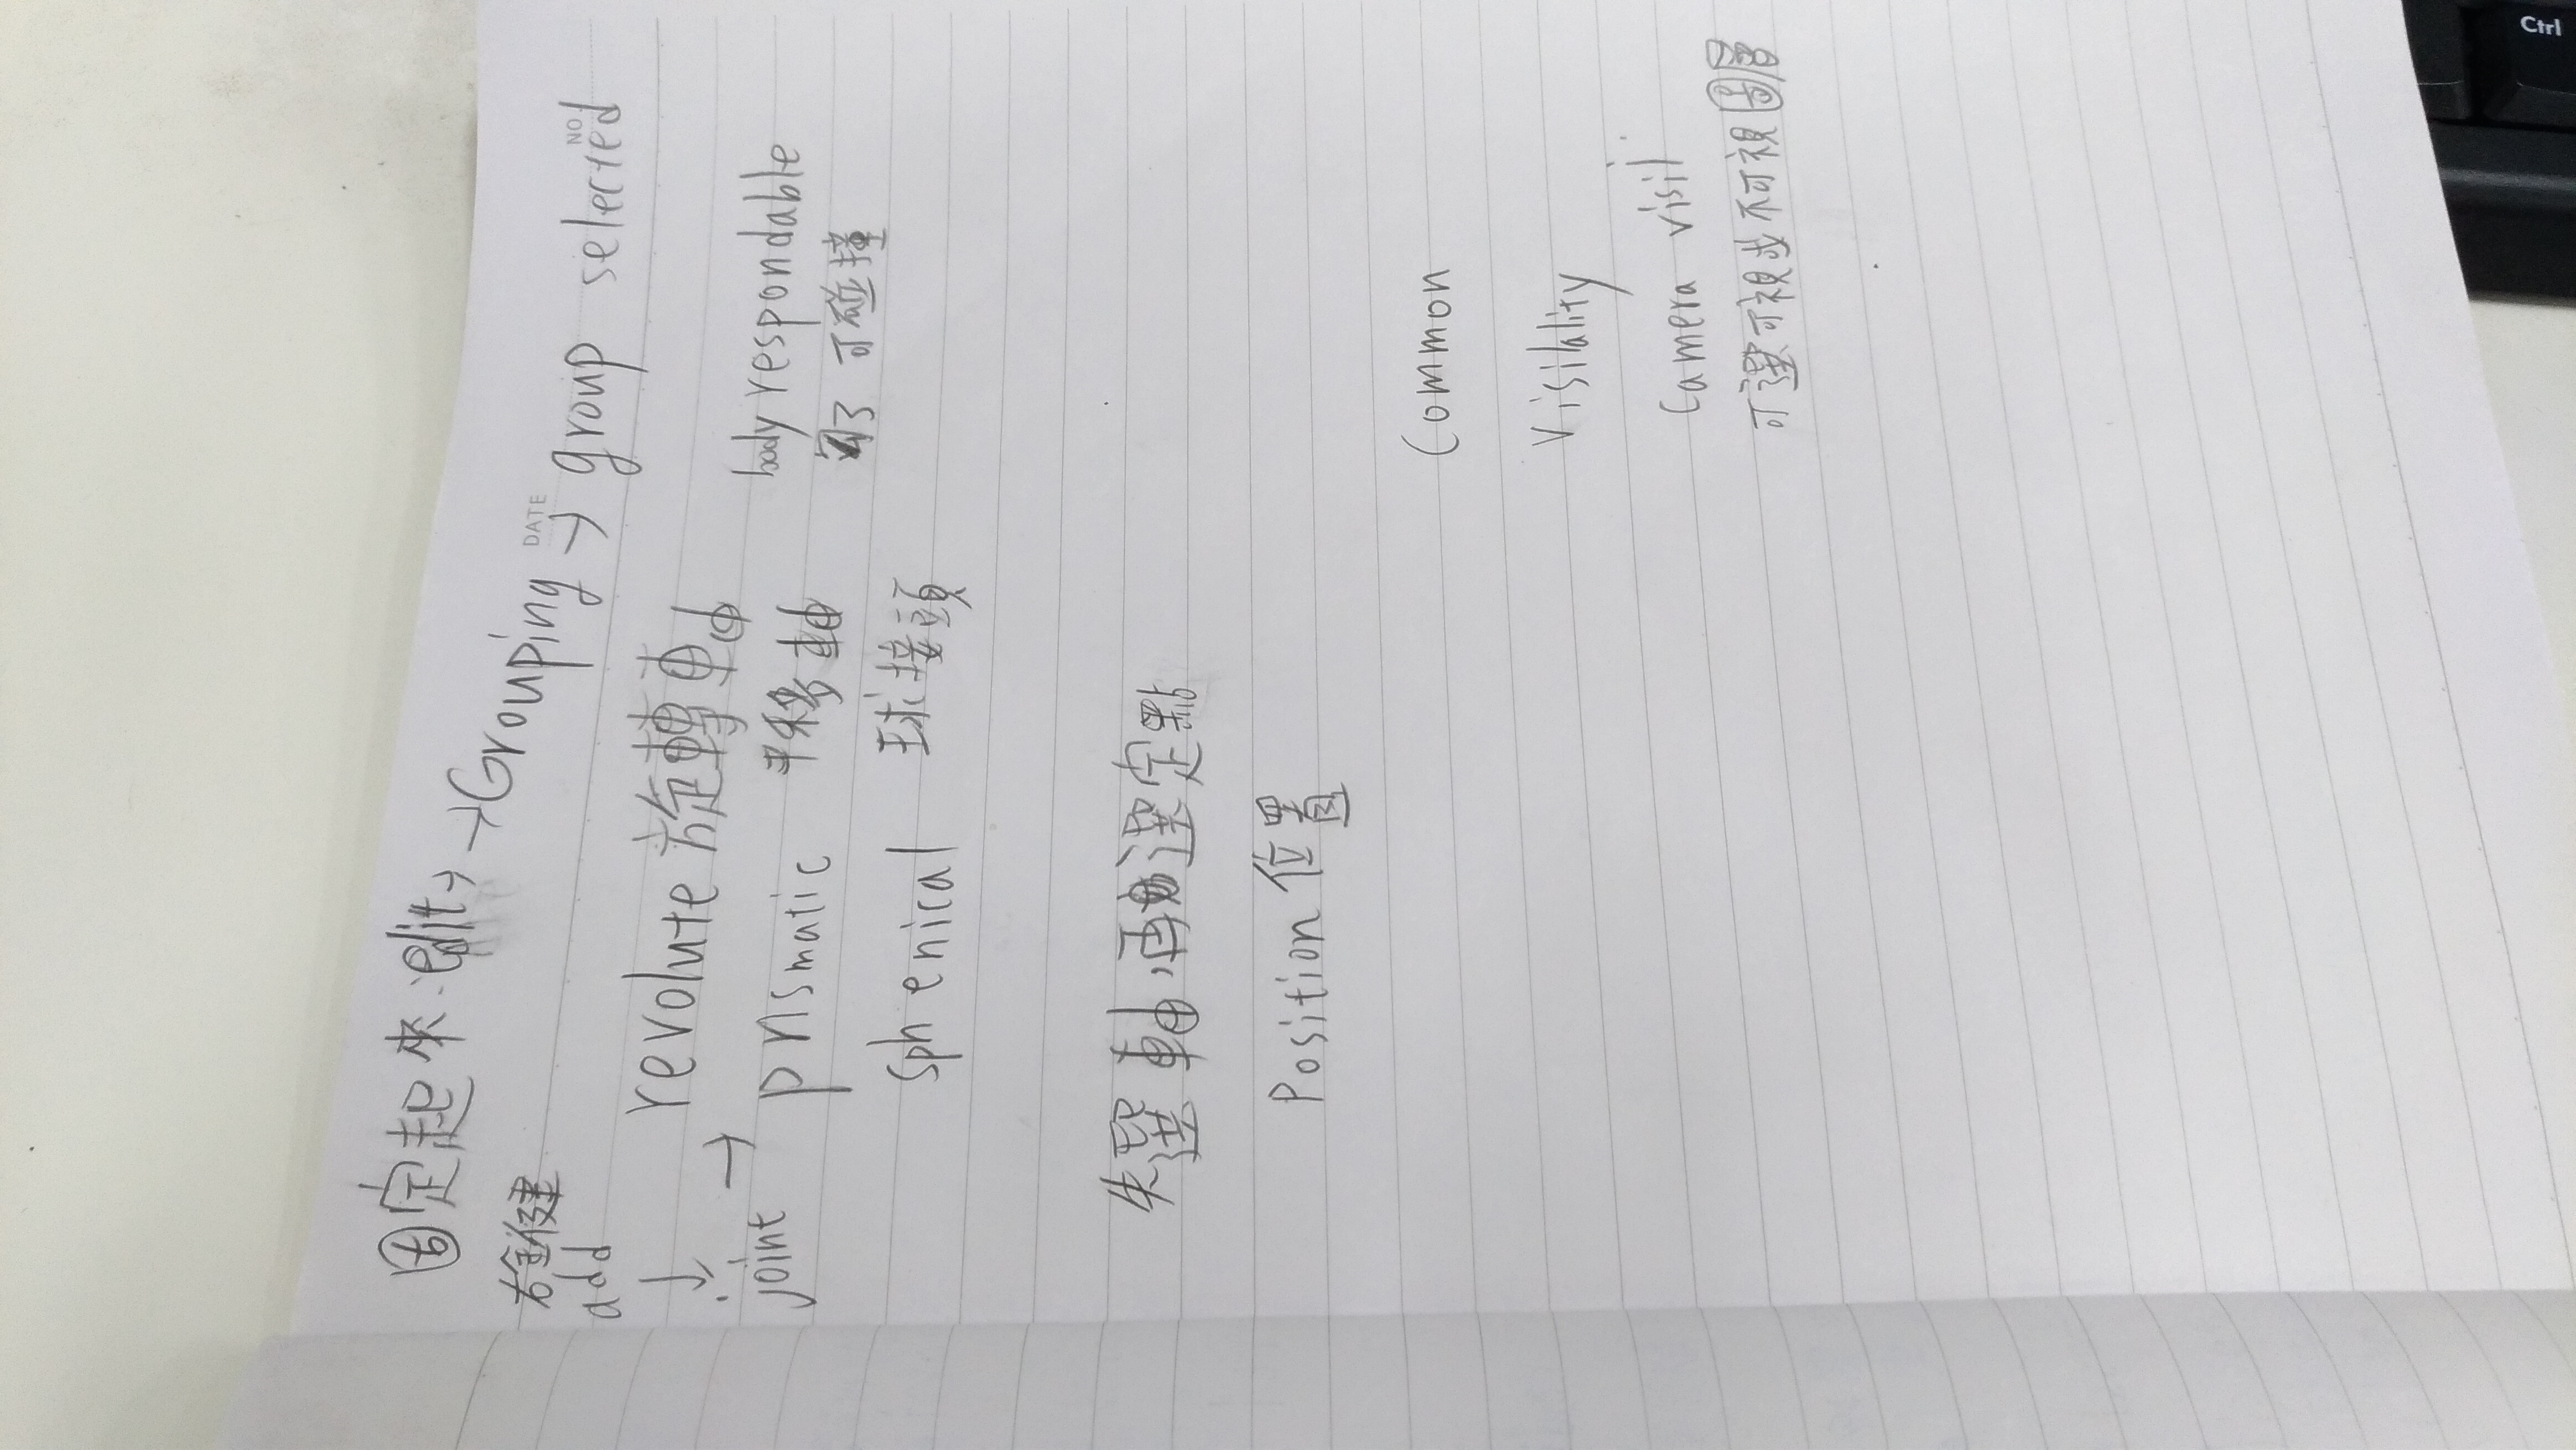 DATE
NO
固定起來:edit→→Grouping→group selected
右鍵健
add
↓
joint → revolute 旋轉軸
prismatic 平移軸
sphenical 球接頭
body respondable
可碰撞
先選軸,再選定點
Position 位置
Common
Visilality
Camera visil
可選可視或不可視圖層
Ctrl